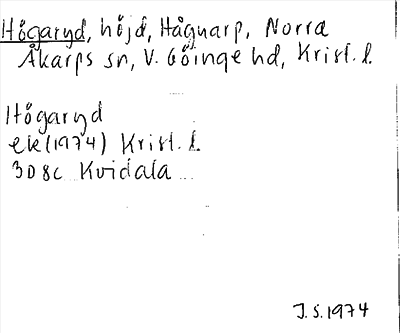 Högaryd, höjd, Hågnarp, Norra
Åkarps sn, V. Göinge hd, Krist. l.
Högaryd
ek (1974) Krist. l.
3D8c Kvidala
J.S. 1974